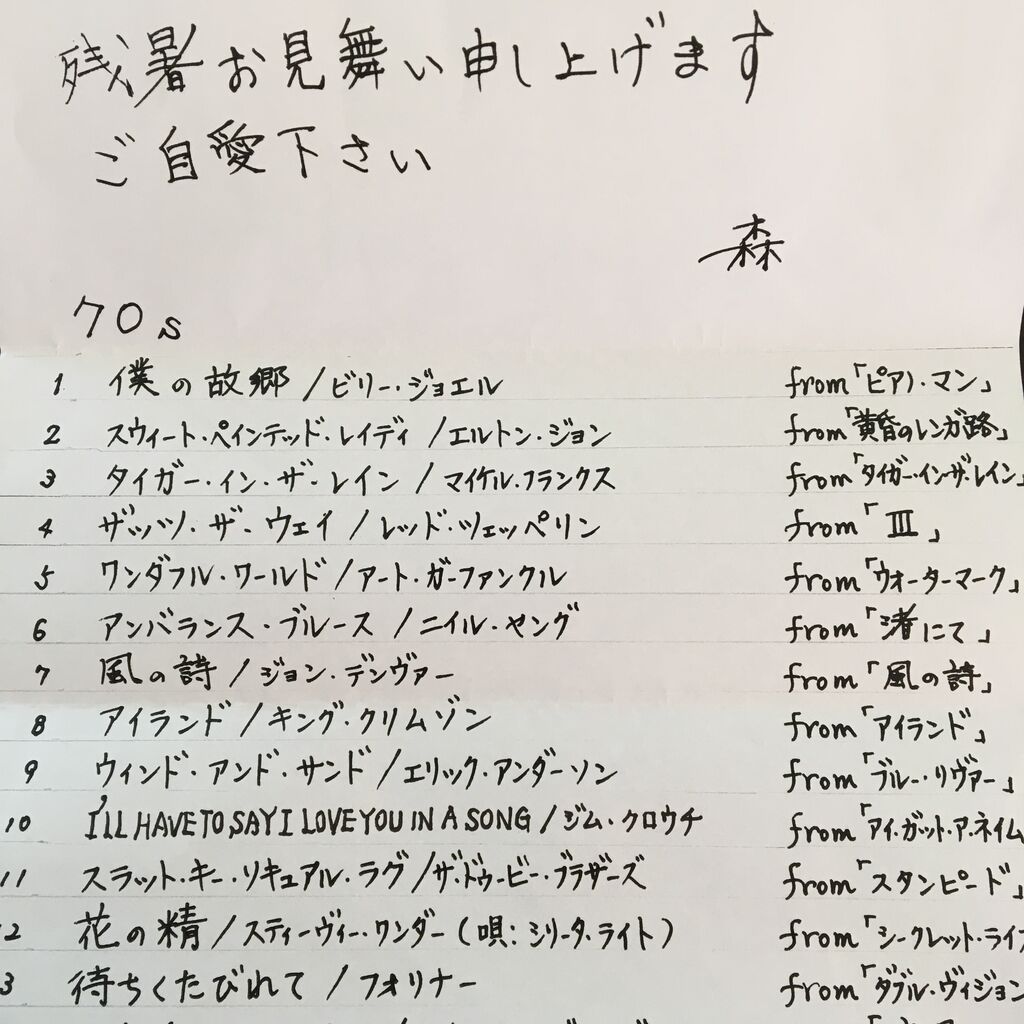 残暑お見舞い申し上げます
ご自愛下さい
森
70s
1 僕の故郷/ビリー・ジョエル from「ピアノ・マン」
2 スウィート・ペインテッド・レイディ/エルトン・ジョン from「黄昏のレンガ路」
3 タイガー・イン・ザ・レイン/マイケル・フランクス from「タイガー・イン・ザ・レイン」
4 ザッツ・ザ・ウェイ/レッド・ツェッペリン from「III」
5 ワンダフル・ワールド/アート・ガーファンクル from「ウォーターマーク」
6 アンバランス・ブルース/ニイル・ヤング from「渚にて」
7 風の詩/ジョン・デンヴァー from「風の詩」
8 アイランド/キング・クリムゾン from「アイランド」
9 ウィンド・アンド・サンド/エリック・アンダーソン from「ブルー・リヴァー」
10 I'LL HAVE TO SAY I LOVE YOU IN A SONG/ジム・クロウチ from「アイ・ガット・ア・ネイム
11 スラット・キー・ソキュアル・ラグ/ザ・ドゥービー・ブラザーズ from「スタンピード」
2 花の精/スティーヴィー・ワンダー(唄:シリータ・ライト) from「シークレット・ライフ
3 待ちくたびれて/フォリナー from「ダブル・ヴィジョン